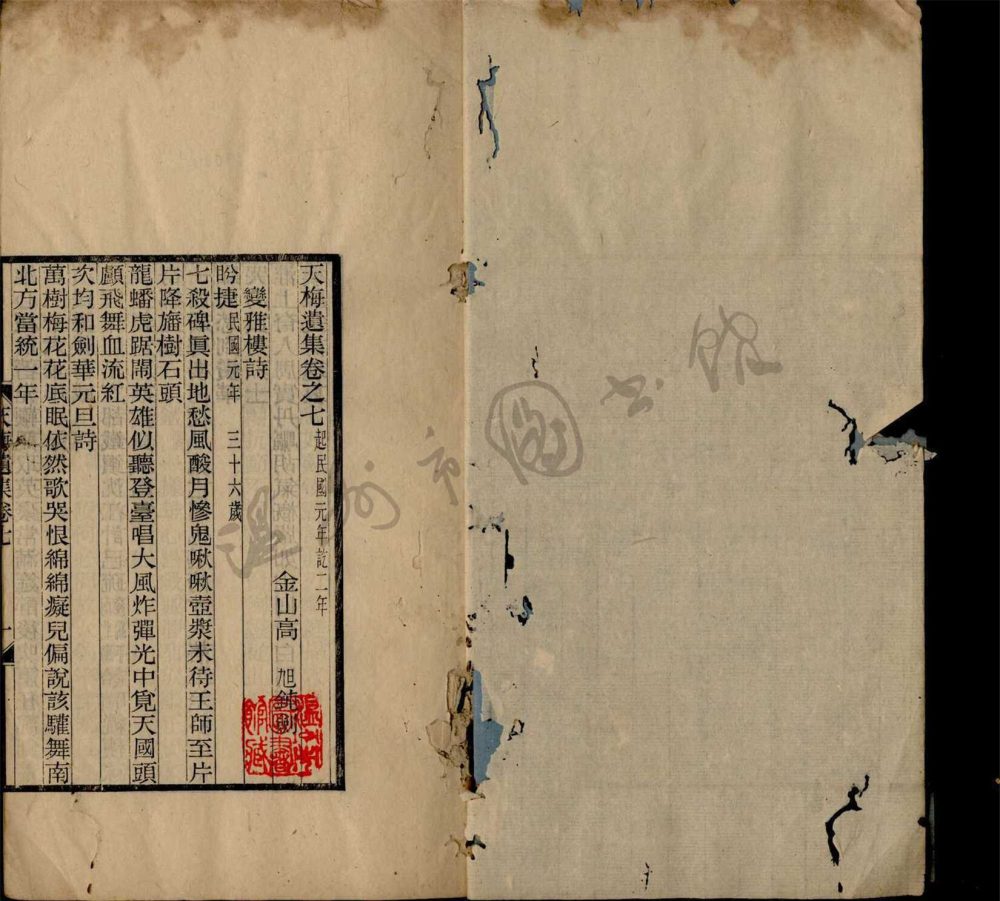 天梅遺集卷之七 起民國元年訖二年
變雅樓詩 金山高 旭 鈍劍
盻捷 民國元年 三十六歲
七殺碑眞出地愁風酸月慘鬼啾啾壺漿未待王師至片
片降旛樹石頭
龍蟠虎踞閙英雄似聽登臺唱大風炸彈光中覓天國頭
顱飛舞血流紅
次均和劍華元旦詩
萬樹梅花花底眠依然歌哭恨綿綿癡兒偏說該驩舞南
北方當統一年
天梅遺集卷七
一
溫州市圖書館
溫州市圖書館藏